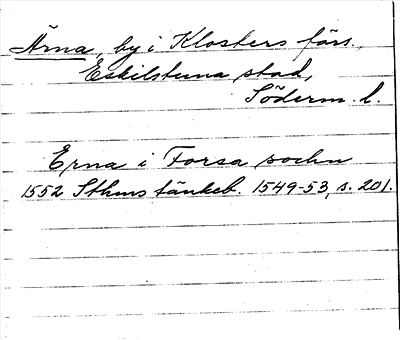 Ärna, by i Klosters förs.,
Eskilstuna stad,
Söderm. l.
Erna i Forsa sochn
1552 Sthms tänkeb. 1549-53, s. 201.